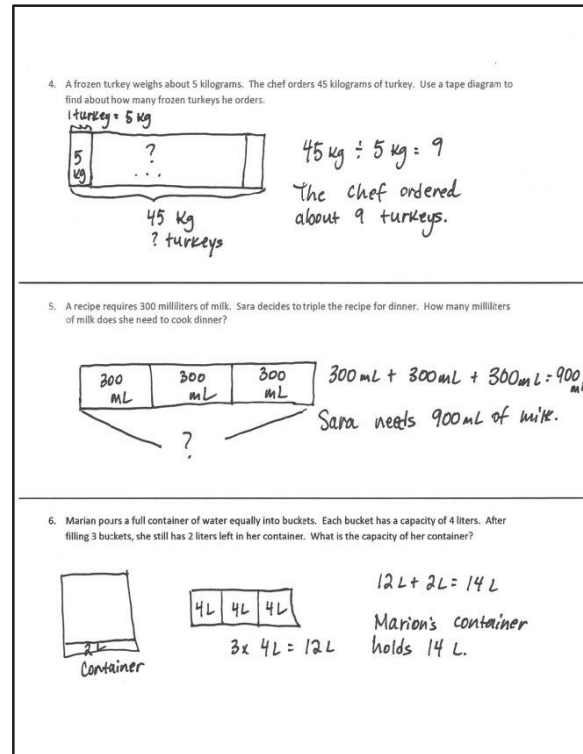 4. A frozen turkey weighs about 5 kilograms. The chef orders 45 kilograms of turkey. Use a tape diagram to
find about how many frozen turkeys he orders.
1 turkey = 5 kg
5
kg
?
...
45 kg
? turkeys
45 kg ÷ 5 kg = 9
The chef ordered
about 9 turkeys.
5. A recipe requires 300 milliliters of milk. Sara decides to triple the recipe for dinner. How many milliliters
of milk does she need to cook dinner?
300 mL
300 mL
300 mL
?
300 mL + 300 mL + 300 mL = 900 mL
Sara needs 900 mL of milk.
6. Marian pours a full container of water equally into buckets. Each bucket has a capacity of 4 liters. After
filling 3 buckets, she still has 2 liters left in her container. What is the capacity of her container?
2L
Container
4L 4L 4L
3x 4L = 12L
12L + 2L = 14L
Marion's container
holds 14 L.